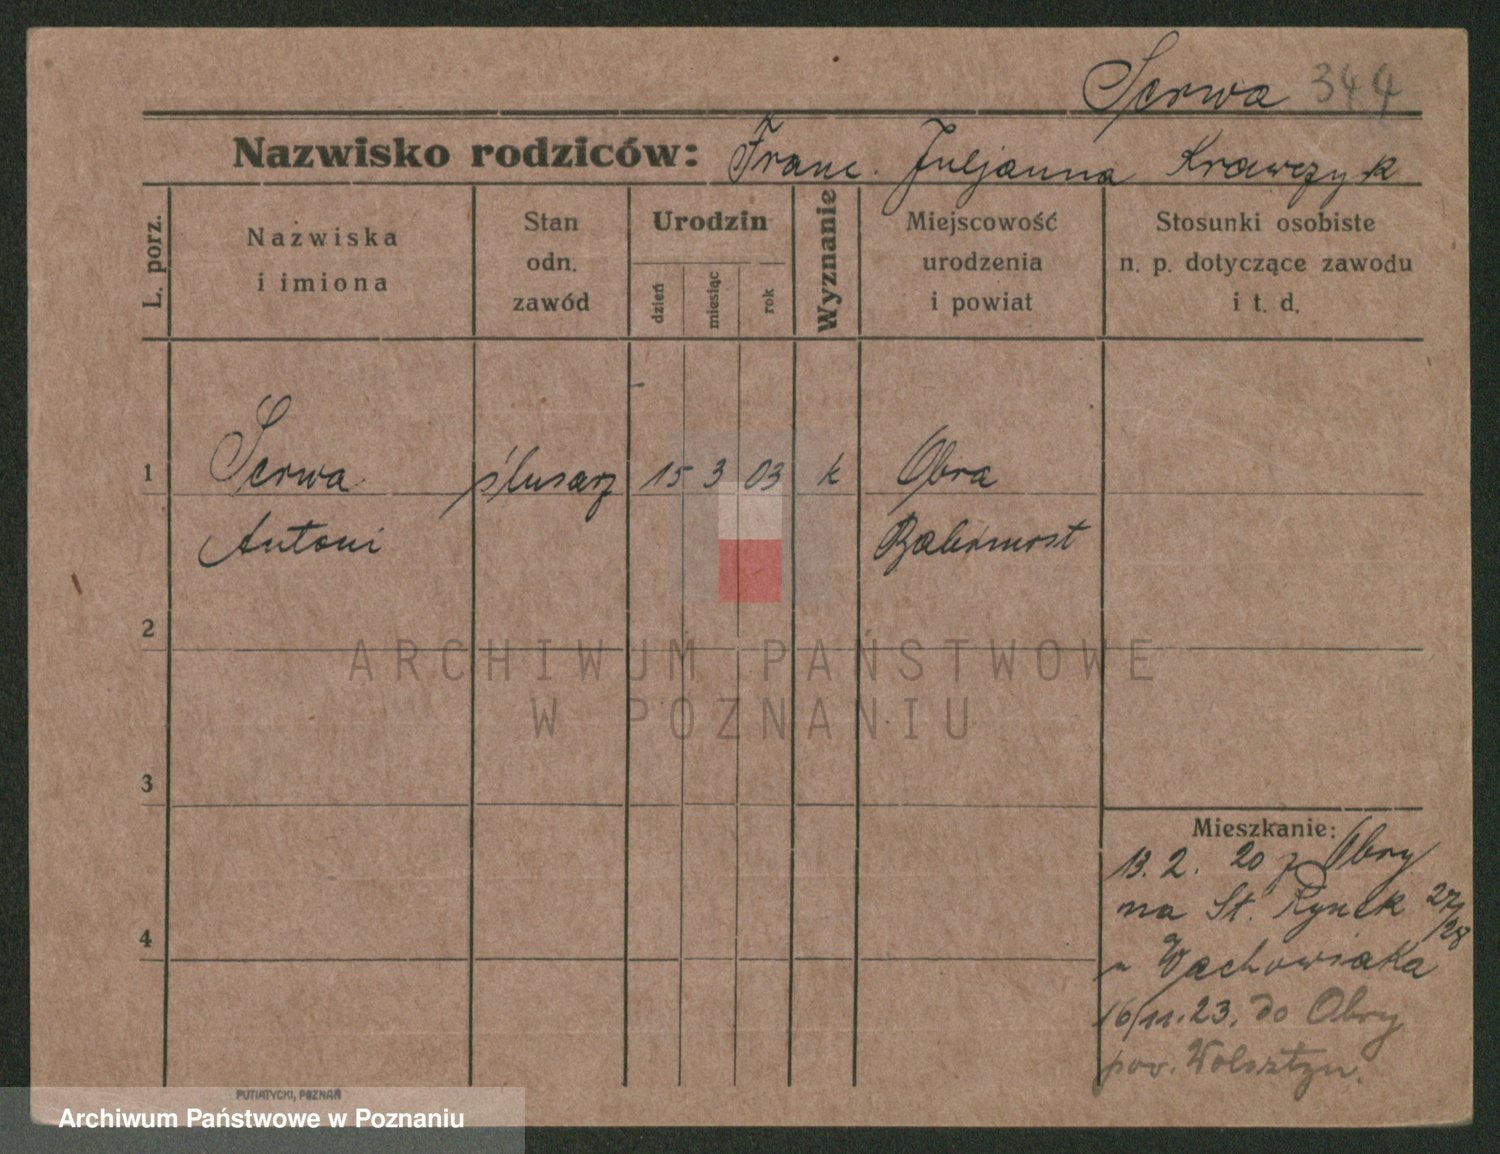 Serwa 344
Nazwisko rodziców: Franc. Juljanna Krawczyk
L. porz.
Nazwiska
i imiona
Stan
odn.
zawód
Urodzin
dzień
miesiąc
rok
Wyznanie
Miejscowość
urodzenia
i powiat
Stosunki osobiste
n. p. dotyczące zawodu
i t. d.
1 Serwa ślusarz 15 3 03 k Obra
Antoni Babimost
2
ARCHIWUM PAŃSTWOWE
W POZNANIU
3
Mieszkanie:
13. 2. 20 z Obry
na St. Rynek 27/28
u Wachowiaka
4
16/11.23. do Obry
pow. Wolsztyn.
PUTIATYCKI, POZNAŃ
Archiwum Państwowe w Poznaniu